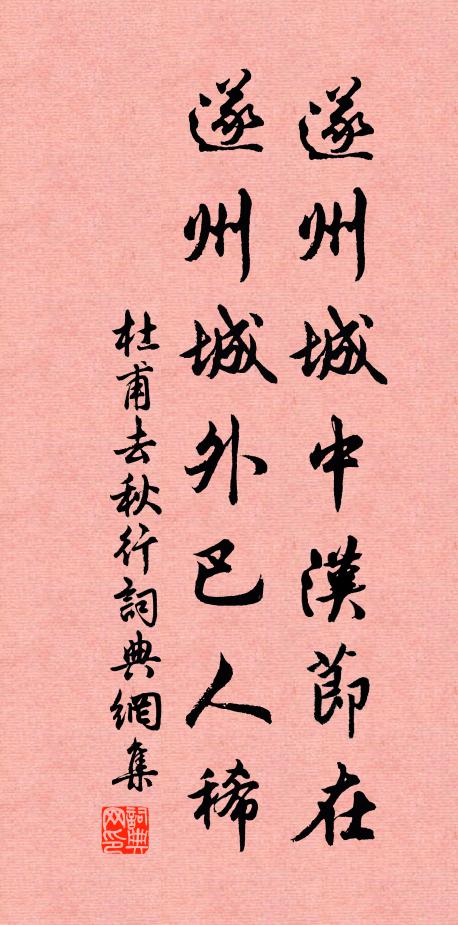 遂州城中漢節在
遂州城外巴人稀
杜甫去秋行詞典網集
詞典网印